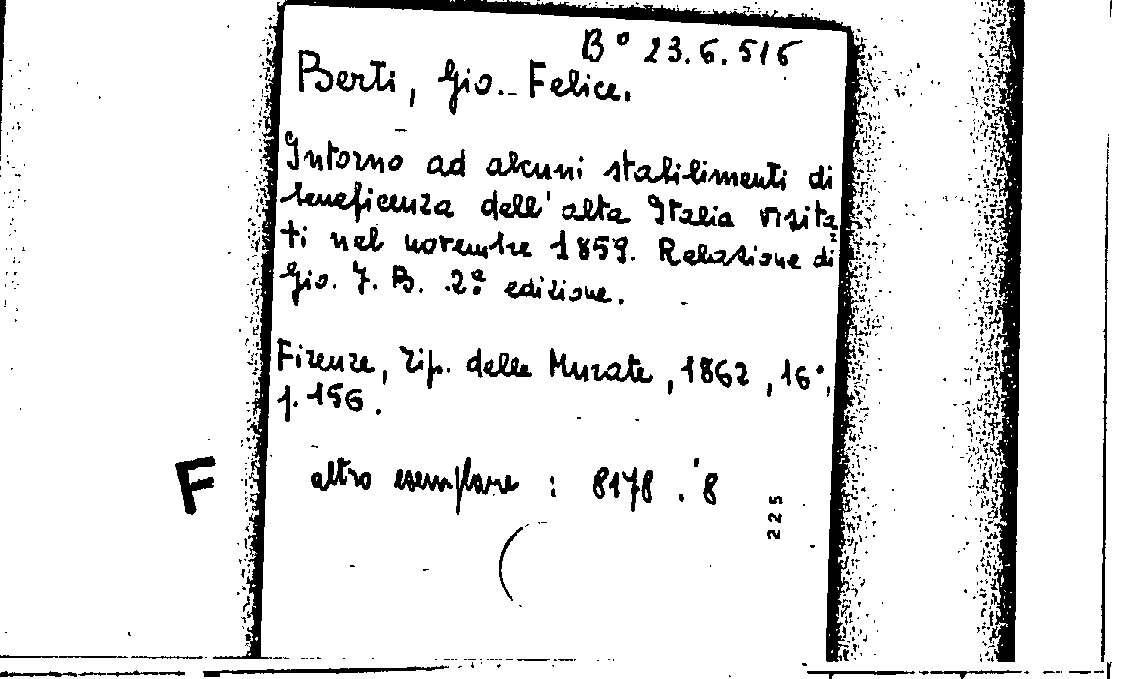 B° 23.6.516
Berti, Gio. Felice.
Intorno ad alcuni stabilimenti di
beneficenza dell'alta Italia visita-
ti nel novembre 1859. Relazione di
Gio. F. B. 2ª edizione.
Firenze, Tip. delle Murate, 1862, 16°,
p. 156.
F
altro esemplare : 8178 . 8
225